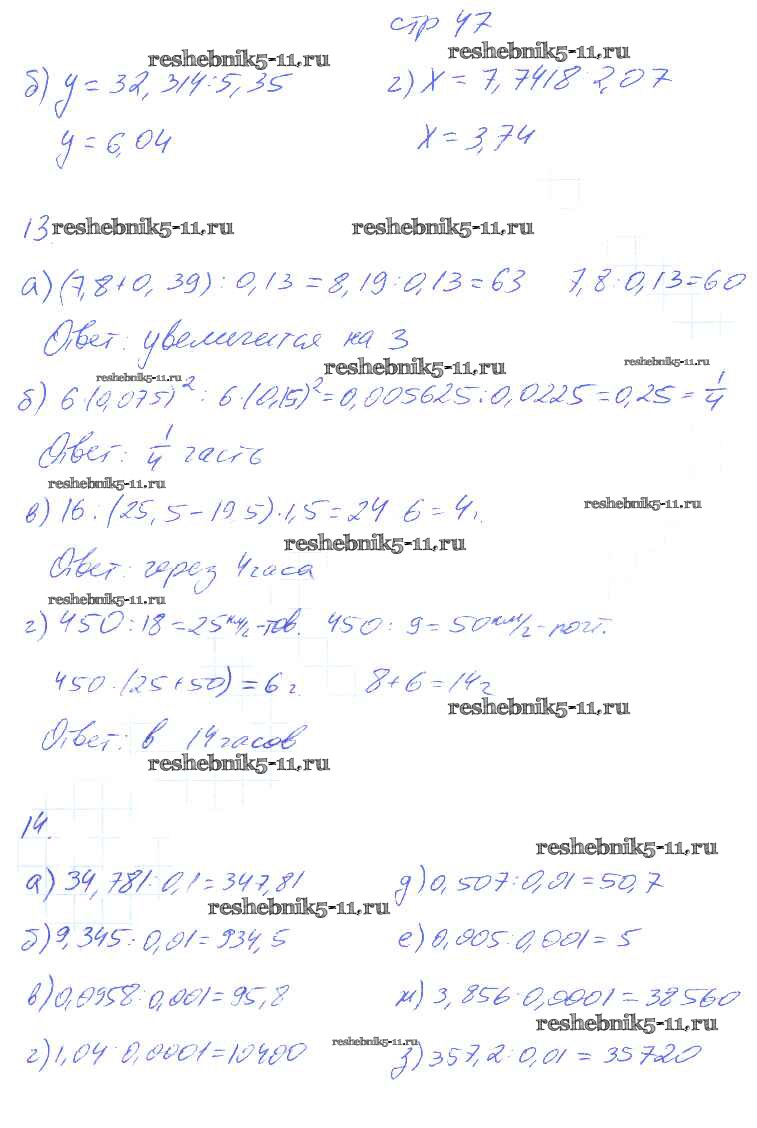 стр 47
reshebnik5-11.ru reshebnik5-11.ru
б) y = 32,314:5,35 г) x = 7,7418:2,07
y = 6,04 x = 3,74
13. reshebnik5-11.ru reshebnik5-11.ru
а) (7,8+0,39):0,13=8,19:0,13=63 7,8:0,13=60
Ответ: увеличится на 3
reshebnik5-11.ru reshebnik5-11.ru
reshebnik5-11.ru
б) 6·(0,075)²:6·(0,15)²=0,005625:0,0225=0,25=1/4
Ответ: 1/4 часть
reshebnik5-11.ru reshebnik5-11.ru
в) 16:(25,5-19,5)·1,5=24 6=4ч.
reshebnik5-11.ru
Ответ: через 4 часа
reshebnik5-11.ru
г) 450:18=25км/ч-тов. 450:9=50км/ч-почт.
450:(25+50)=6ч. 8+6=14ч
reshebnik5-11.ru
Ответ: в 14 часов
reshebnik5-11.ru
14.
reshebnik5-11.ru
а) 34,781:0,1=347,81 д) 0,507:0,01=50,7
reshebnik5-11.ru
б) 9,345:0,01=934,5 е) 0,005:0,001=5
в) 0,0958:0,001=95,8 ж) 3,856:0,0001=38560
reshebnik5-11.ru
г) 1,04:0,0001=10400 reshebnik5-11.ru з) 357,2:0,01=35720